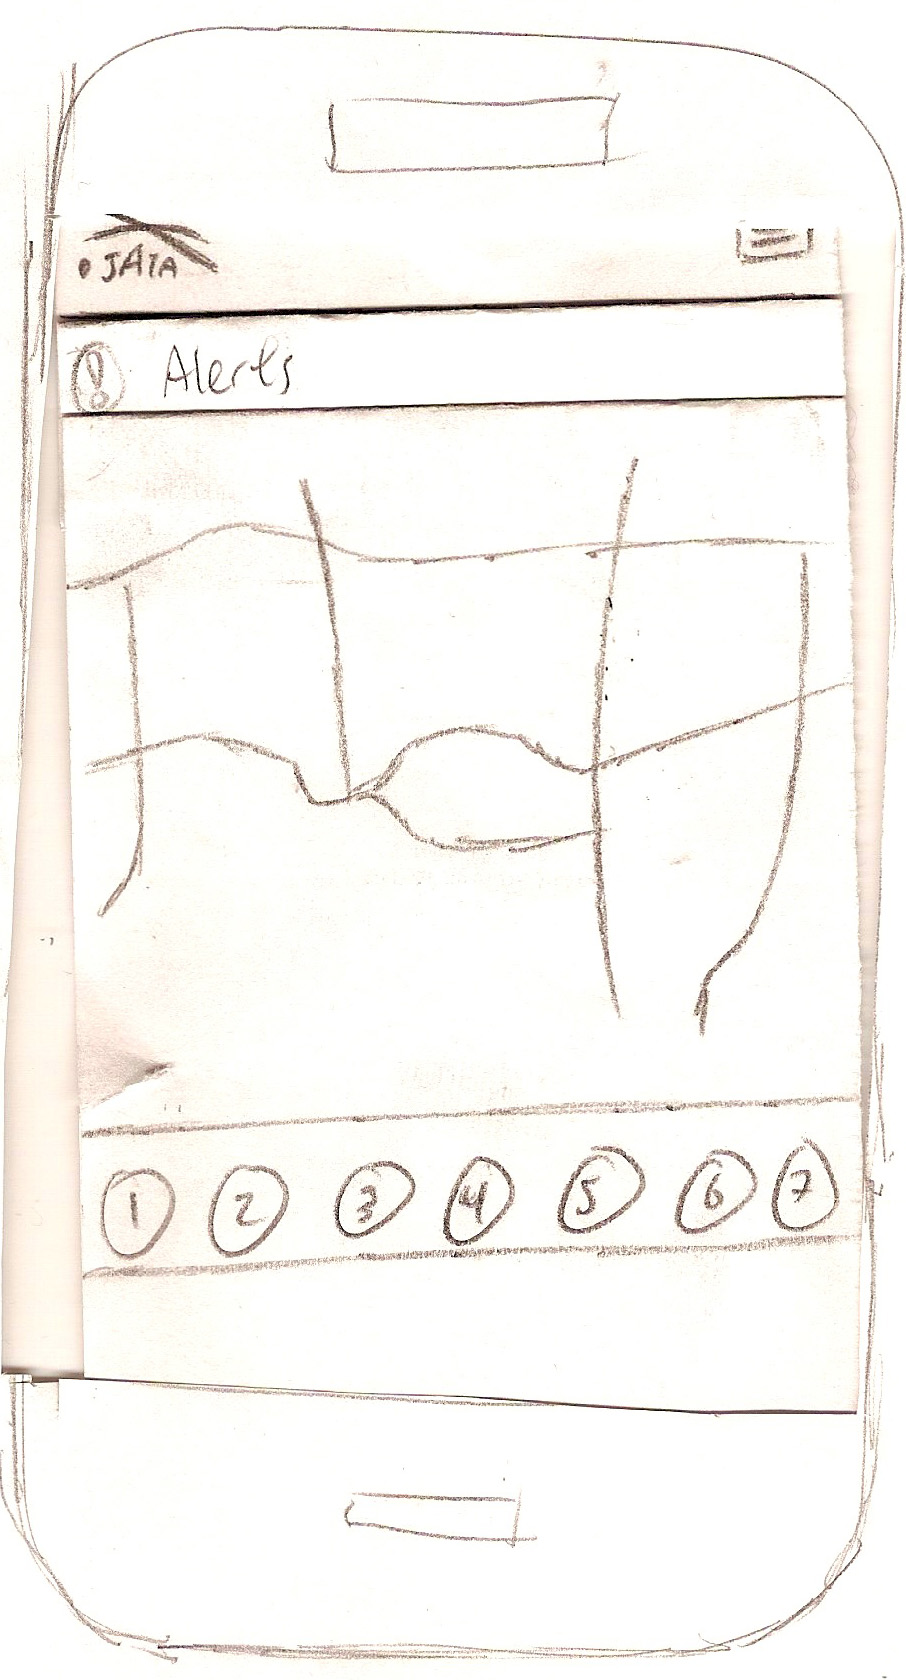 JATA
Alerts
1 2 3 4 5 6 7